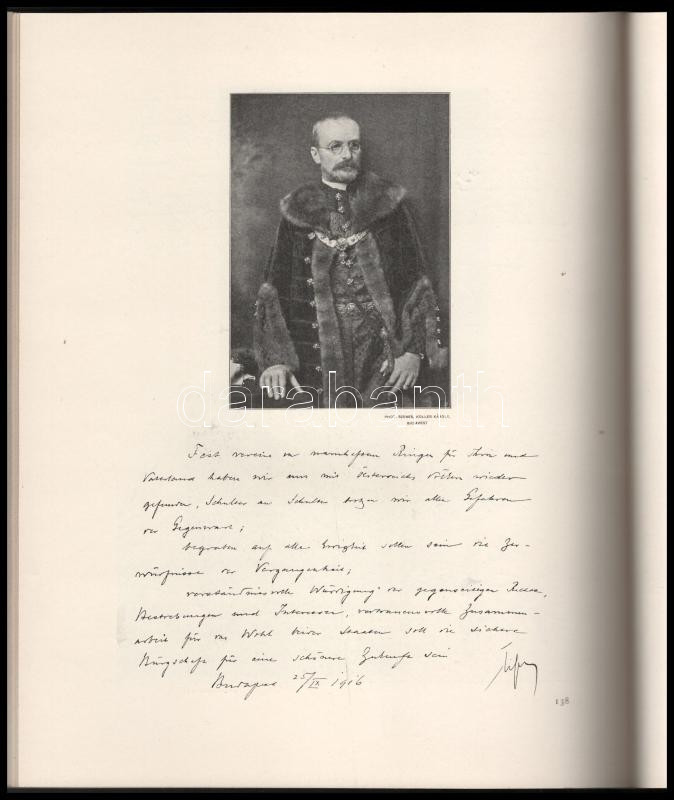 darabanth
PHOT. SZENES, KOLLER KÁROLY,
BUDAPEST
Fest vereint in mannhaftem Ringen für Thron und
Vaterland haben wir uns mit Österreichs Völkern wieder
gefunden, Schulter an Schulter trotzen wir allen Gefahren
der Gegenwart;
begraben auf alle Ewigkeit sollen sein die Zer-
würfnisse der Vergangenheit;
verständnisvolle Würdigung der gegenseitigen Rechte,
Bestrebungen und Interessen, vertrauensvolle Zusammen-
arbeit für das Wohl beider Staaten soll die sichere
Bürgschaft für eine schönere Zukunft sein
Budapest 25/IX 1916
138